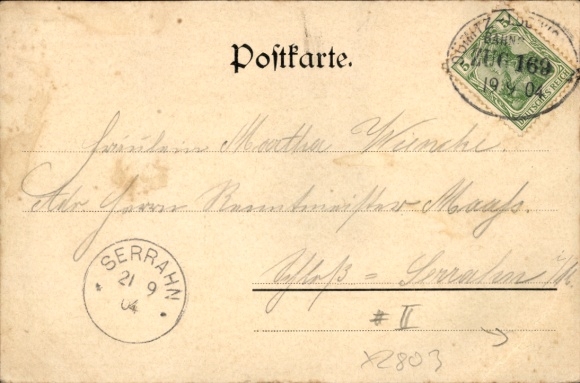 Postkarte.
BAHNP.
ZUG 169
19 9 04
DEUTSCHES REICH
Fräulein Martha
Adr Herrn Rentmeister Maaß.
Schloß = Serrahn i/M.
SERRAHN
21 9
04
# II
X2803